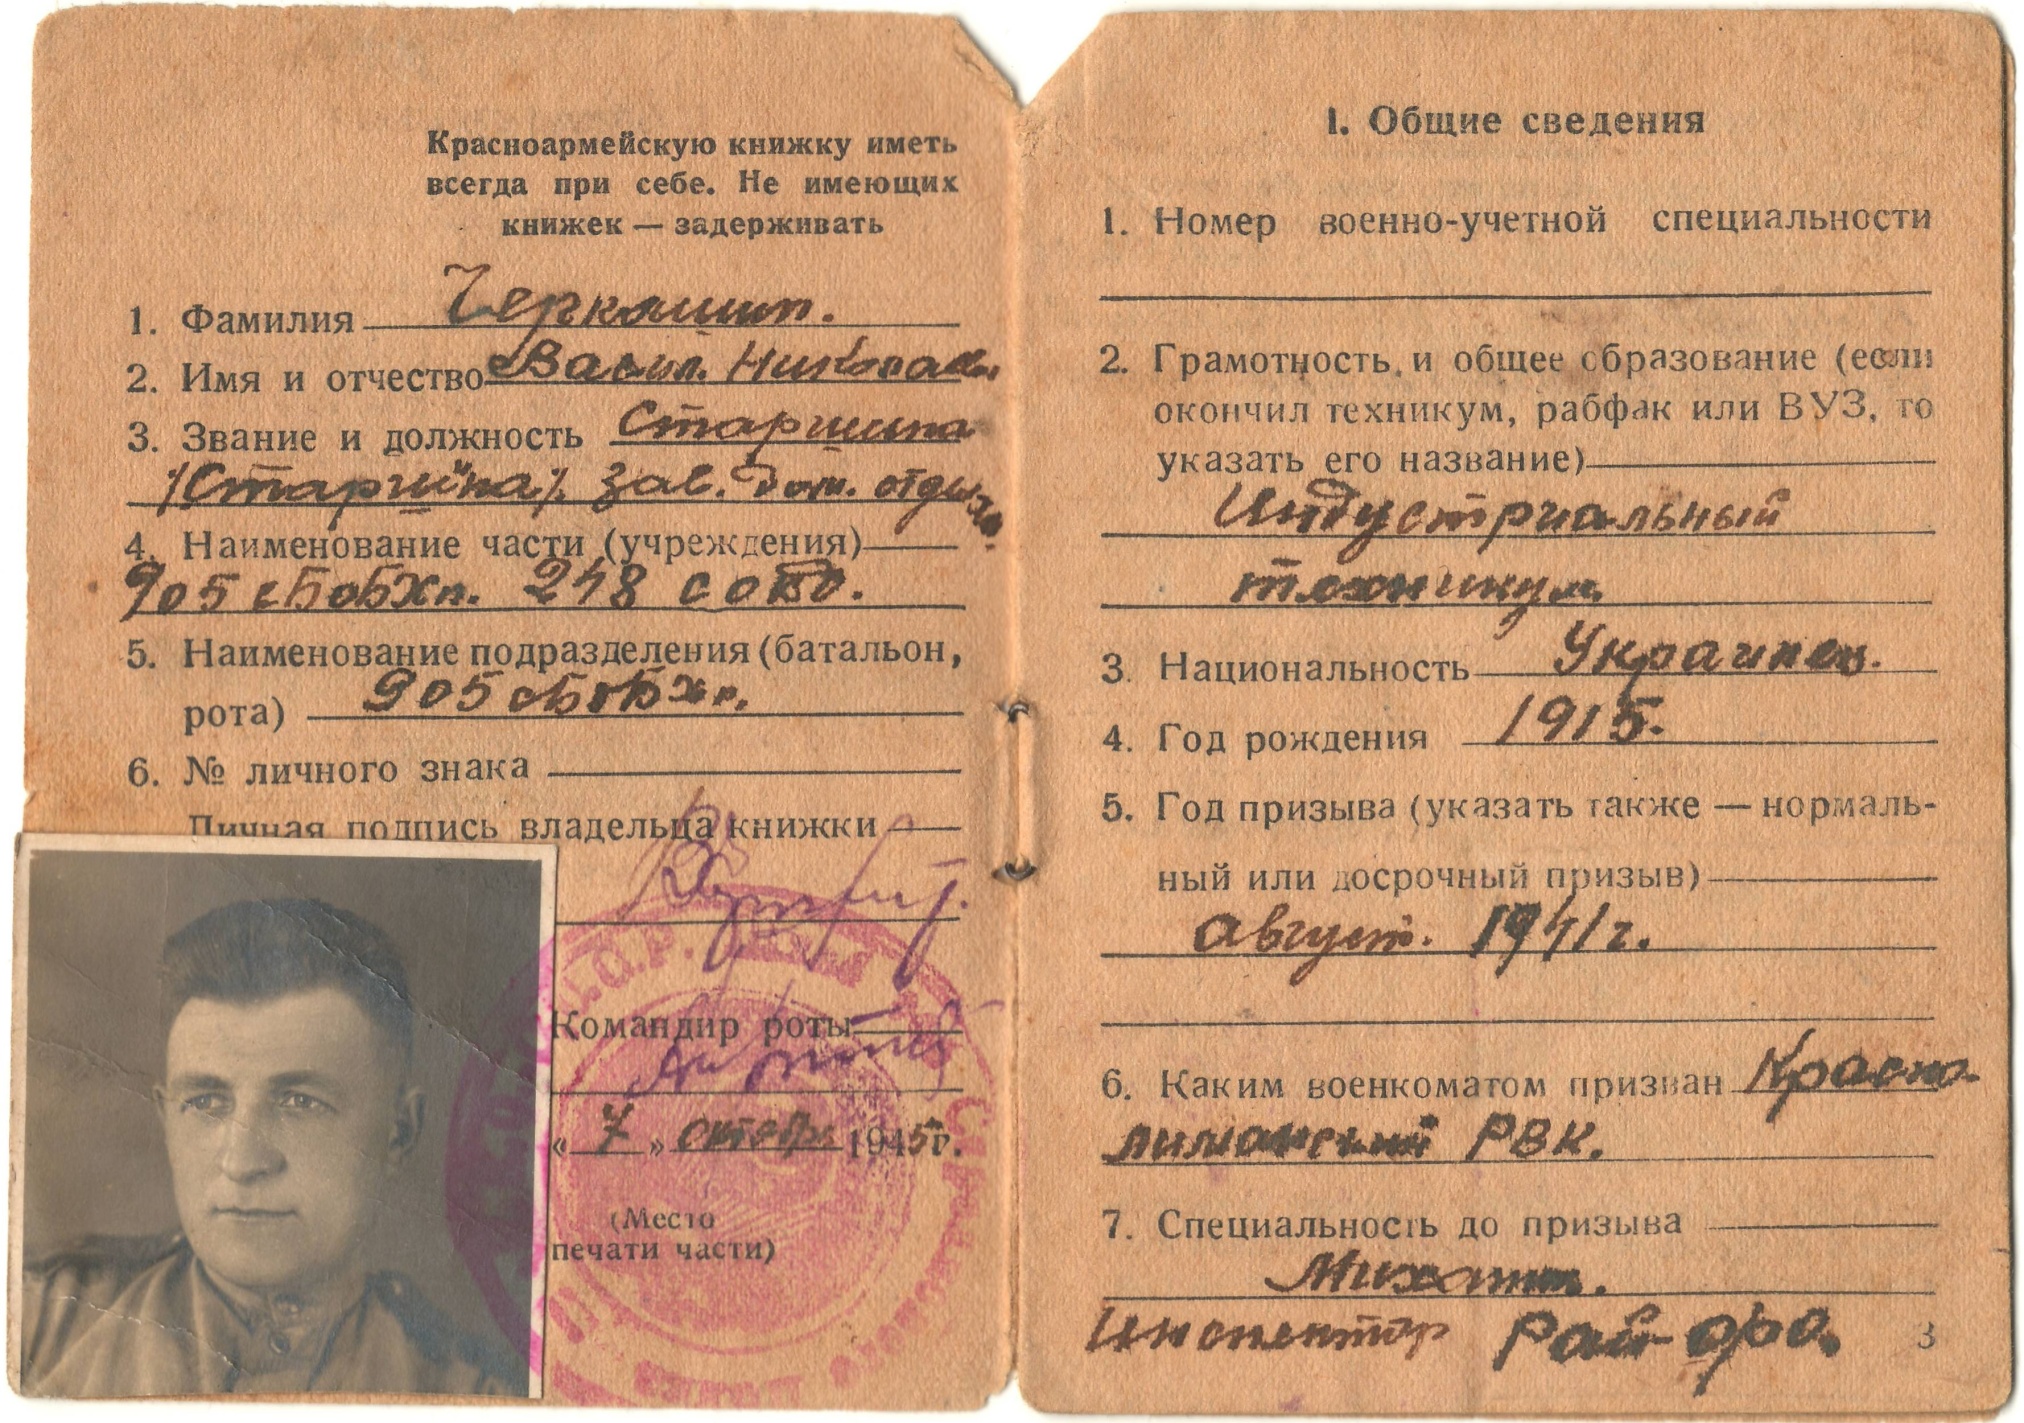 Красноармейскую книжку иметь
всегда при себе. Не имеющих
книжек — задерживать
1. Фамилия Черкашин.
2. Имя и отчество Васил. Николаев.
3. Звание и должность Старшина
/Старшина/. зав. дом. отдыха.
4. Наименование части (учреждения)
905 сБоБХп. 248
5. Наименование подразделения (батальон,
рота) 905 сБоБХп.
6. № личного знака
Личная подпись владельца книжки
Командир роты
« 7 » октябр 1945г.
(Место
печати части)
I. Общие сведения
1. Номер военно-учетной специальности
2. Грамотность и общее образование (если
окончил техникум, рабфак или ВУЗ, то
указать его название)
Индустриальный
техникум
3. Национальность Украинец.
4. Год рождения 1915.
5. Год призыва (указать также — нормаль-
ный или досрочный призыв)
август. 1941г.
6. Каким военкоматом призван Красно-
лиманский РВК.
7. Специальность до призыва
Инспектор Рай-фо.
3